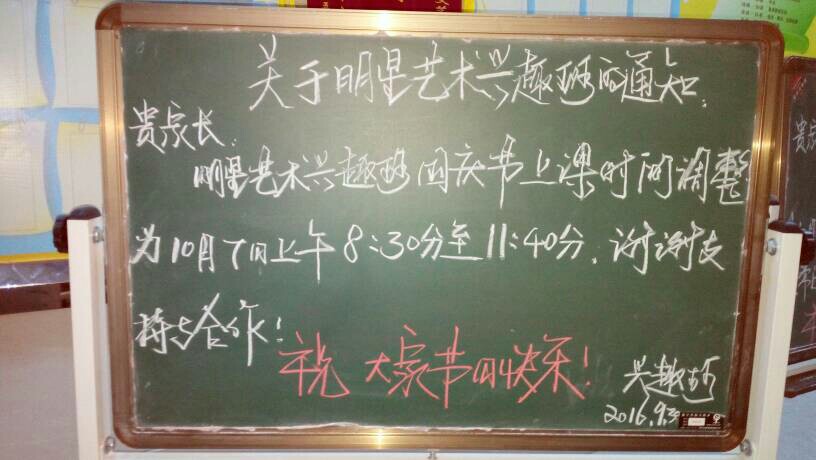 关于明星艺术兴趣班的通知:
贵家长:
明星艺术兴趣班国庆节上课时间调整
为10月7日上午8:30分至11:40分,谢谢支
持与合作!
祝大家节日快乐!
兴趣班
2016.9.30